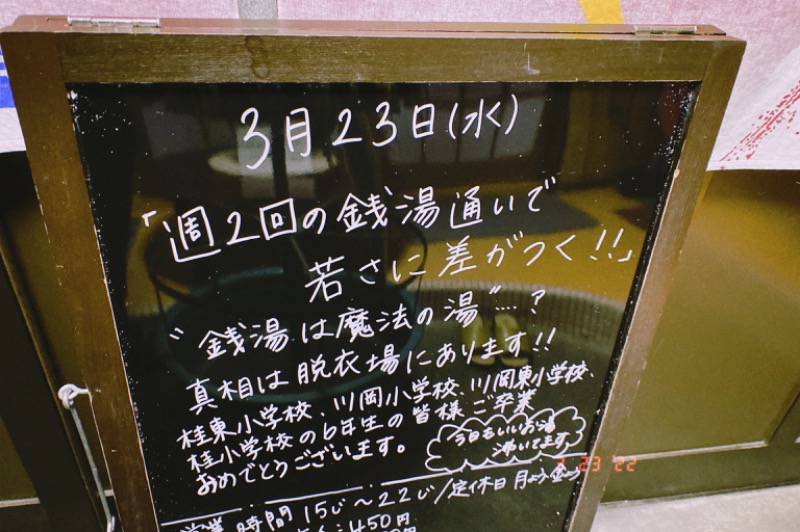 3月23日(水)
「週2回の銭湯通いで
若さに差がつく!!」
〝銭湯は魔法の湯〟…?
真相は脱衣場にあります!!
桂東小学校、川岡小学校、川岡東小学校、
桂小学校の6年生の皆様ご卒業
おめでとうございます。
今日もいいお湯
沸いてます
営業時間 15じ〜22じ/定休日 月よう
450円
3 23 '22